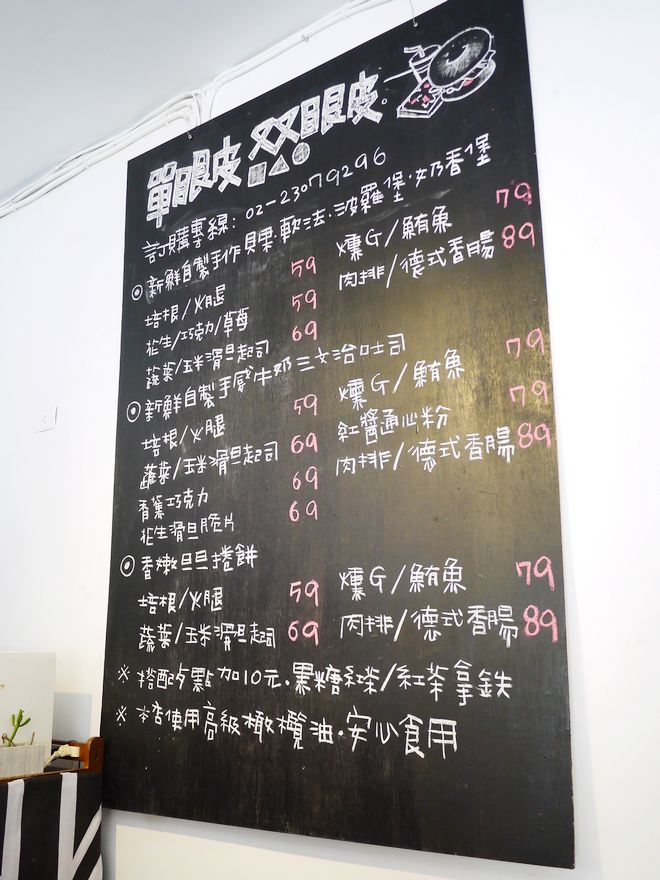 單眼皮 双眼皮
訂購專線：02-23079296
◉新鮮自製手作貝果·軟法·波羅堡·奶香堡
培根/火腿 59
花生/巧克力/草莓 59
蔬菜/玉米滑旦起司 69
燻G/鮪魚 79
肉排/德式香腸 89
◉新鮮自製手感牛奶三文治吐司
培根/火腿 59
蔬菜/玉米滑旦起司 69
香蕉巧克力 69
花生滑旦脆片 69
燻G/鮪魚 79
紅醬通心粉 79
肉排/德式香腸 89
◉香嫩旦旦捲餅
培根/火腿 59
蔬菜/玉米滑旦起司 69
燻G/鮪魚 79
肉排/德式香腸 89
※搭配夕點加10元·黑糖紅茶/紅茶拿鉄
※本店使用高級橄欖油·安心食用